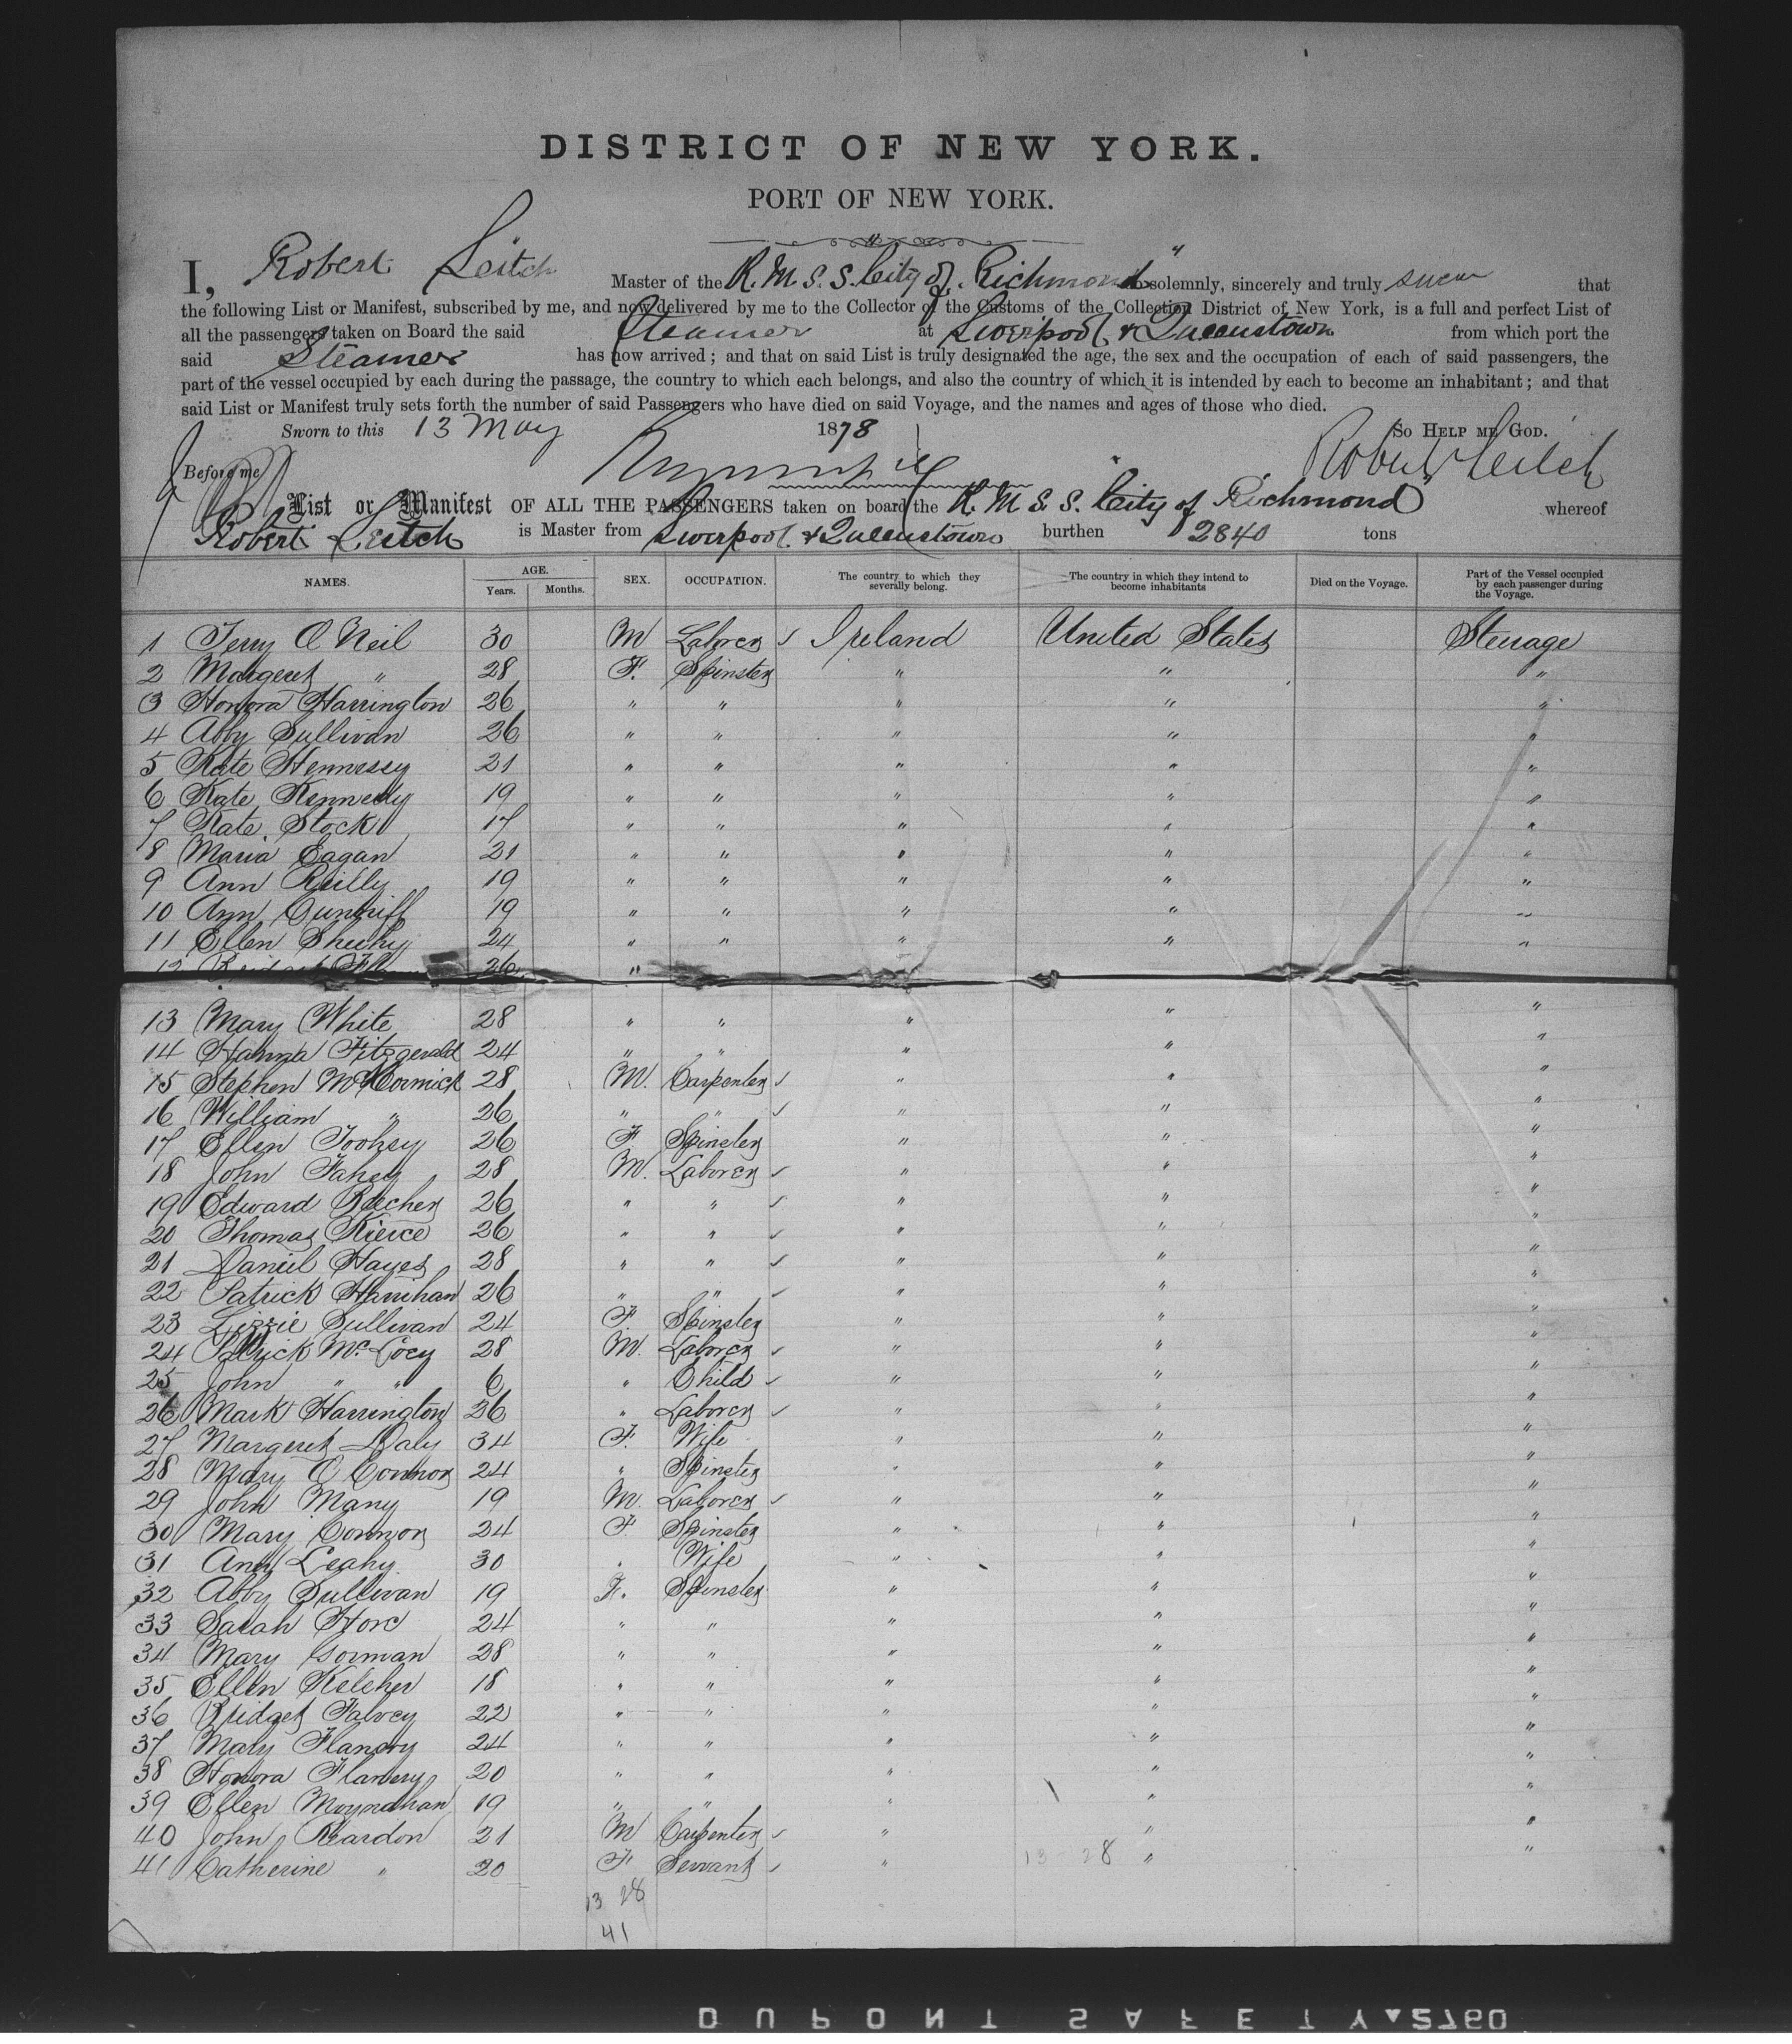 DISTRICT OF NEW YORK.
PORT OF NEW YORK.
I, Robert Leitch Master of the R.M.S.S. City of Richmond" do solemnly, sincerely and truly swear that
the following List or Manifest, subscribed by me, and now delivered by me to the Collector of the Customs of the Collection District of New York, is a full and perfect List of
all the passengers taken on Board the said Steamer at Liverpool & Queenstown from which port the
said Steamer has now arrived; and that on said List is truly designated the age, the sex and the occupation of each of said passengers, the
part of the vessel occupied by each during the passage, the country to which each belongs, and also the country of which it is intended by each to become an inhabitant; and that
said List or Manifest truly sets forth the number of said Passengers who have died on said Voyage, and the names and ages of those who died.
Sworn to this 13 May 1878 So Help me God.
Before me Robert Leitch
List or Manifest OF ALL THE PASSENGERS taken on board the R.M.S.S. City of Richmond" whereof
Robert Leitch is Master from Liverpool & Queenstown burthen 2840 tons
NAMES. AGE. Years. Months. SEX. OCCUPATION. The country to which they severally belong. The country in which they intend to become inhabitants Died on the Voyage. Part of the Vessel occupied by each passenger during the Voyage.
1 Terry O Neil 30 M Laborer ✓ Ireland United States Steerage
2 Margeret " 28 F. Spinster " " "
3 Honora Harrington 26 " " " " "
4 Abby Sullivan 26 " " " " "
5 Kate Hennessy 21 " " " " "
6 Kate Kennedy 19 " " " " "
7 Kate Stock 17 " " " " "
8 Maria Eagan 21 " " " " "
9 Ann Reilly 19 " " " " "
10 Ann Cunniff 19 " " " " "
11 Ellen Sheehy 24 " " " " "
12 26 "
13 Mary White 28 " " " " "
14 Hanna Fitzgerald 24 " " " " "
15 Stephen McCormick 28 M. Carpenter ✓ " " "
16 William " 26 " " ✓ " " "
17 Ellen Toohey 26 F Spinster " " "
18 John Fahey 28 M. Laborer ✓ " " "
19 Edward 26 " " ✓ " " "
20 Thomas Kierce 26 " " ✓ " " "
21 Daniel Hayes 28 " " ✓ " " "
22 Patrick Hanihan 26 " " ✓ " " "
23 Lizzie Sullivan 24 F. Spinster " " "
24 Patrick McCoey 28 M. Laborer ✓ " " "
25 John " " 6 " Child ✓ " " "
26 Mark Harrington 26 " Laborer ✓ " " "
27 Margeret Daly 34 F. Wife " " "
28 Mary O Connor 24 " Spinster " " "
29 John Many 19 M. Laborer ✓ " " "
30 Mary Connor 24 F Spinster " " "
31 Ann Leahy 30 " Wife " " "
32 Abby Sullivan 19 F. Spinster " " "
33 Sarah Hore 24 " " " " "
34 Mary Gorman 28 " " " " "
35 Ellen Kelcher 18 " " " " "
36 Bridget Falvey 22 " " " " "
37 Mary Flanery 24 " " " " "
38 Honora Flanery 20 " " " " "
39 Ellen Moynahan 19 " " " " "
40 John Reardon 21 M Carpenter ✓ " " "
41 Catherine " 20 F Servant ✓ " 13 28 " "
13 28
41
DUPONT SAFETY 2760